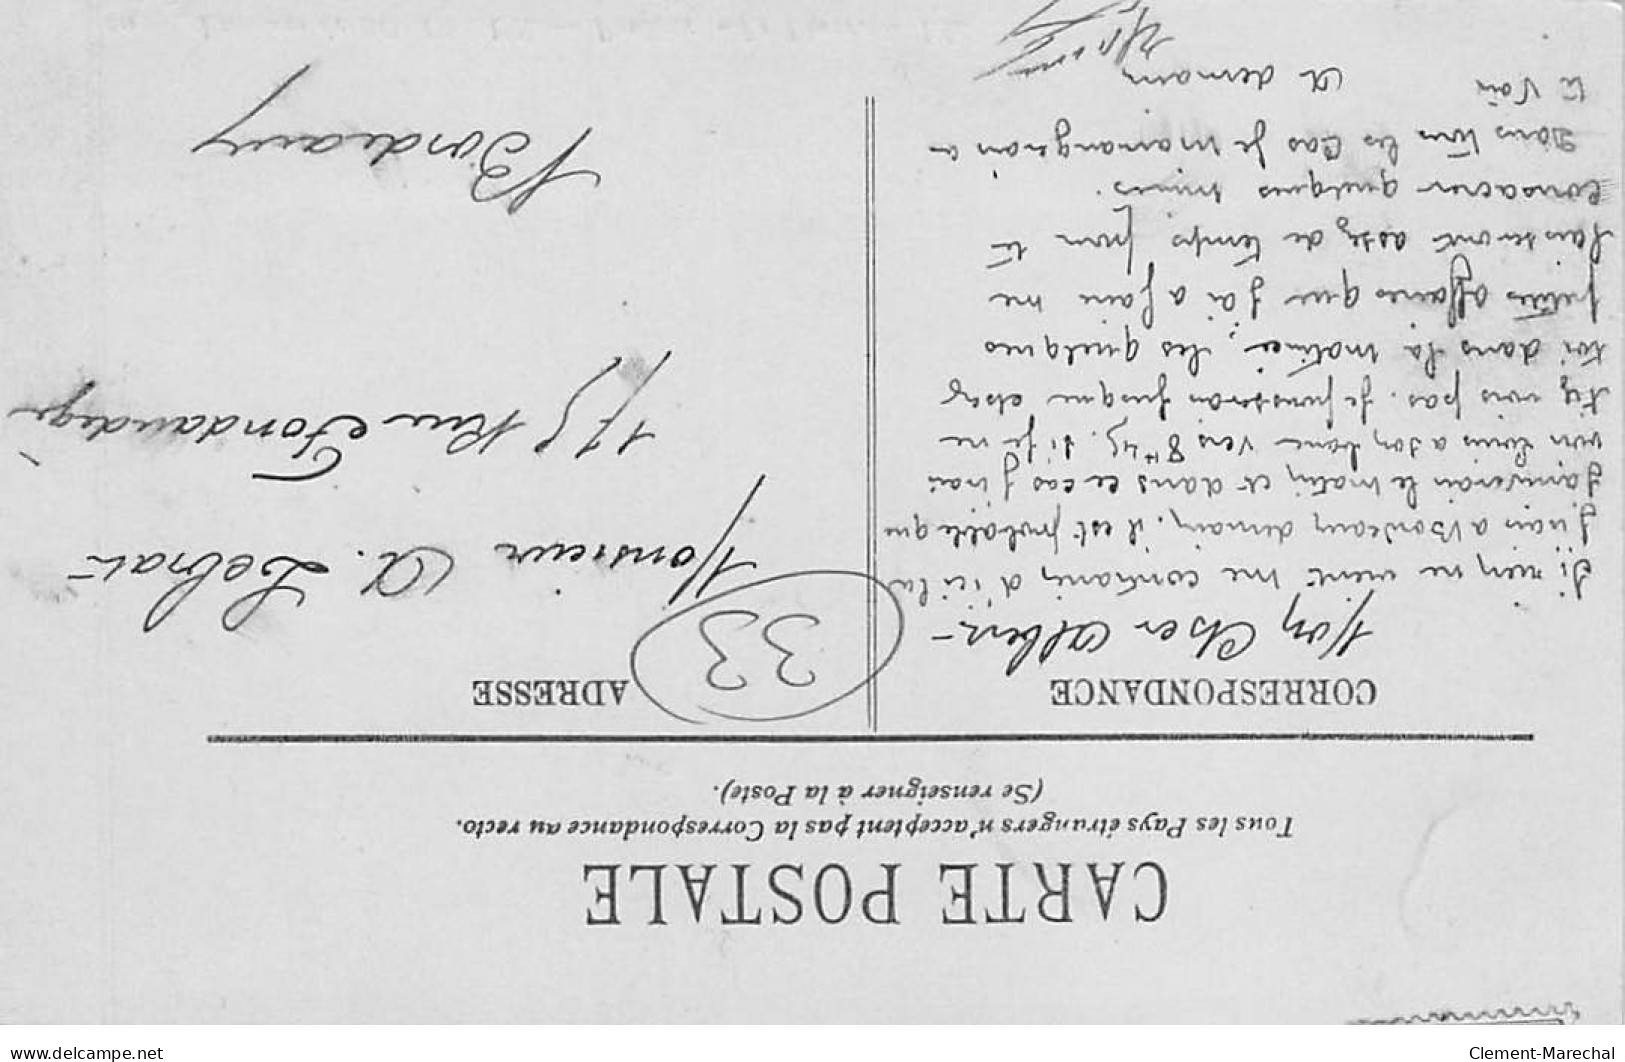 CARTE POSTALE
Tous les Pays étrangers n'acceptent pas la Correspondance au recto.
(Se renseigner à la Poste).
CORRESPONDANCE
Mon Cher Albert
Si rien ne vient me contrarier d'ici là
j'irais a Bordeaux demain, il est probable que
j'arriverai le matin et dans ce cas j'irai
voir Louis a son bane vers 8h45. Si je ne
t'y vois pas. Je pousserai jusque chez
toi dans la matinée, les quelques
petites affaires que j'ai a faire me
laisseront assez de temps pour te
consacrer quelques mines.
Dans tous les cas je m'arrangerai a
te voir
A demain
ADRESSE
33
Monsieur A. Lebrat
175 Rue Fondaudège
Bordeaux
www.delcampe.net
Clement-Marechal